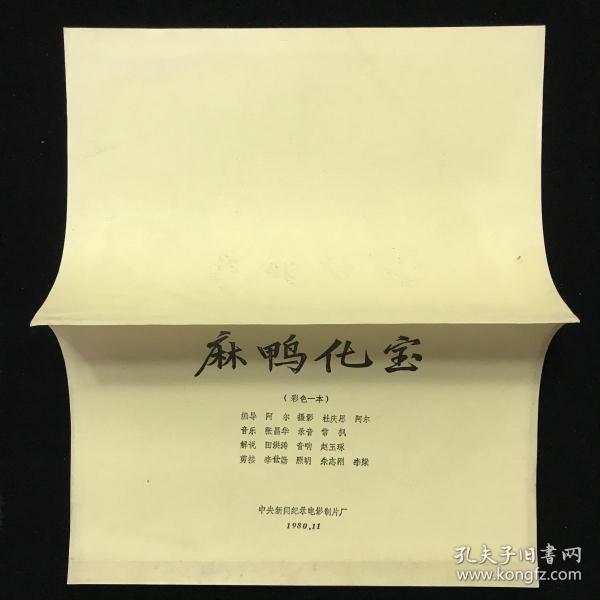 麻鸭化宝
（彩色一本）
编导 阿尔 摄影 杜庆恩 阿尔
音乐 张昌华 录音 常枫
解说 田洪涛 音响 赵玉琢
剪接 李益皓 照明 余志刚 李樑
中央新闻纪录电影制片厂
1980.11
孔夫子旧书网
www.kongfz.com